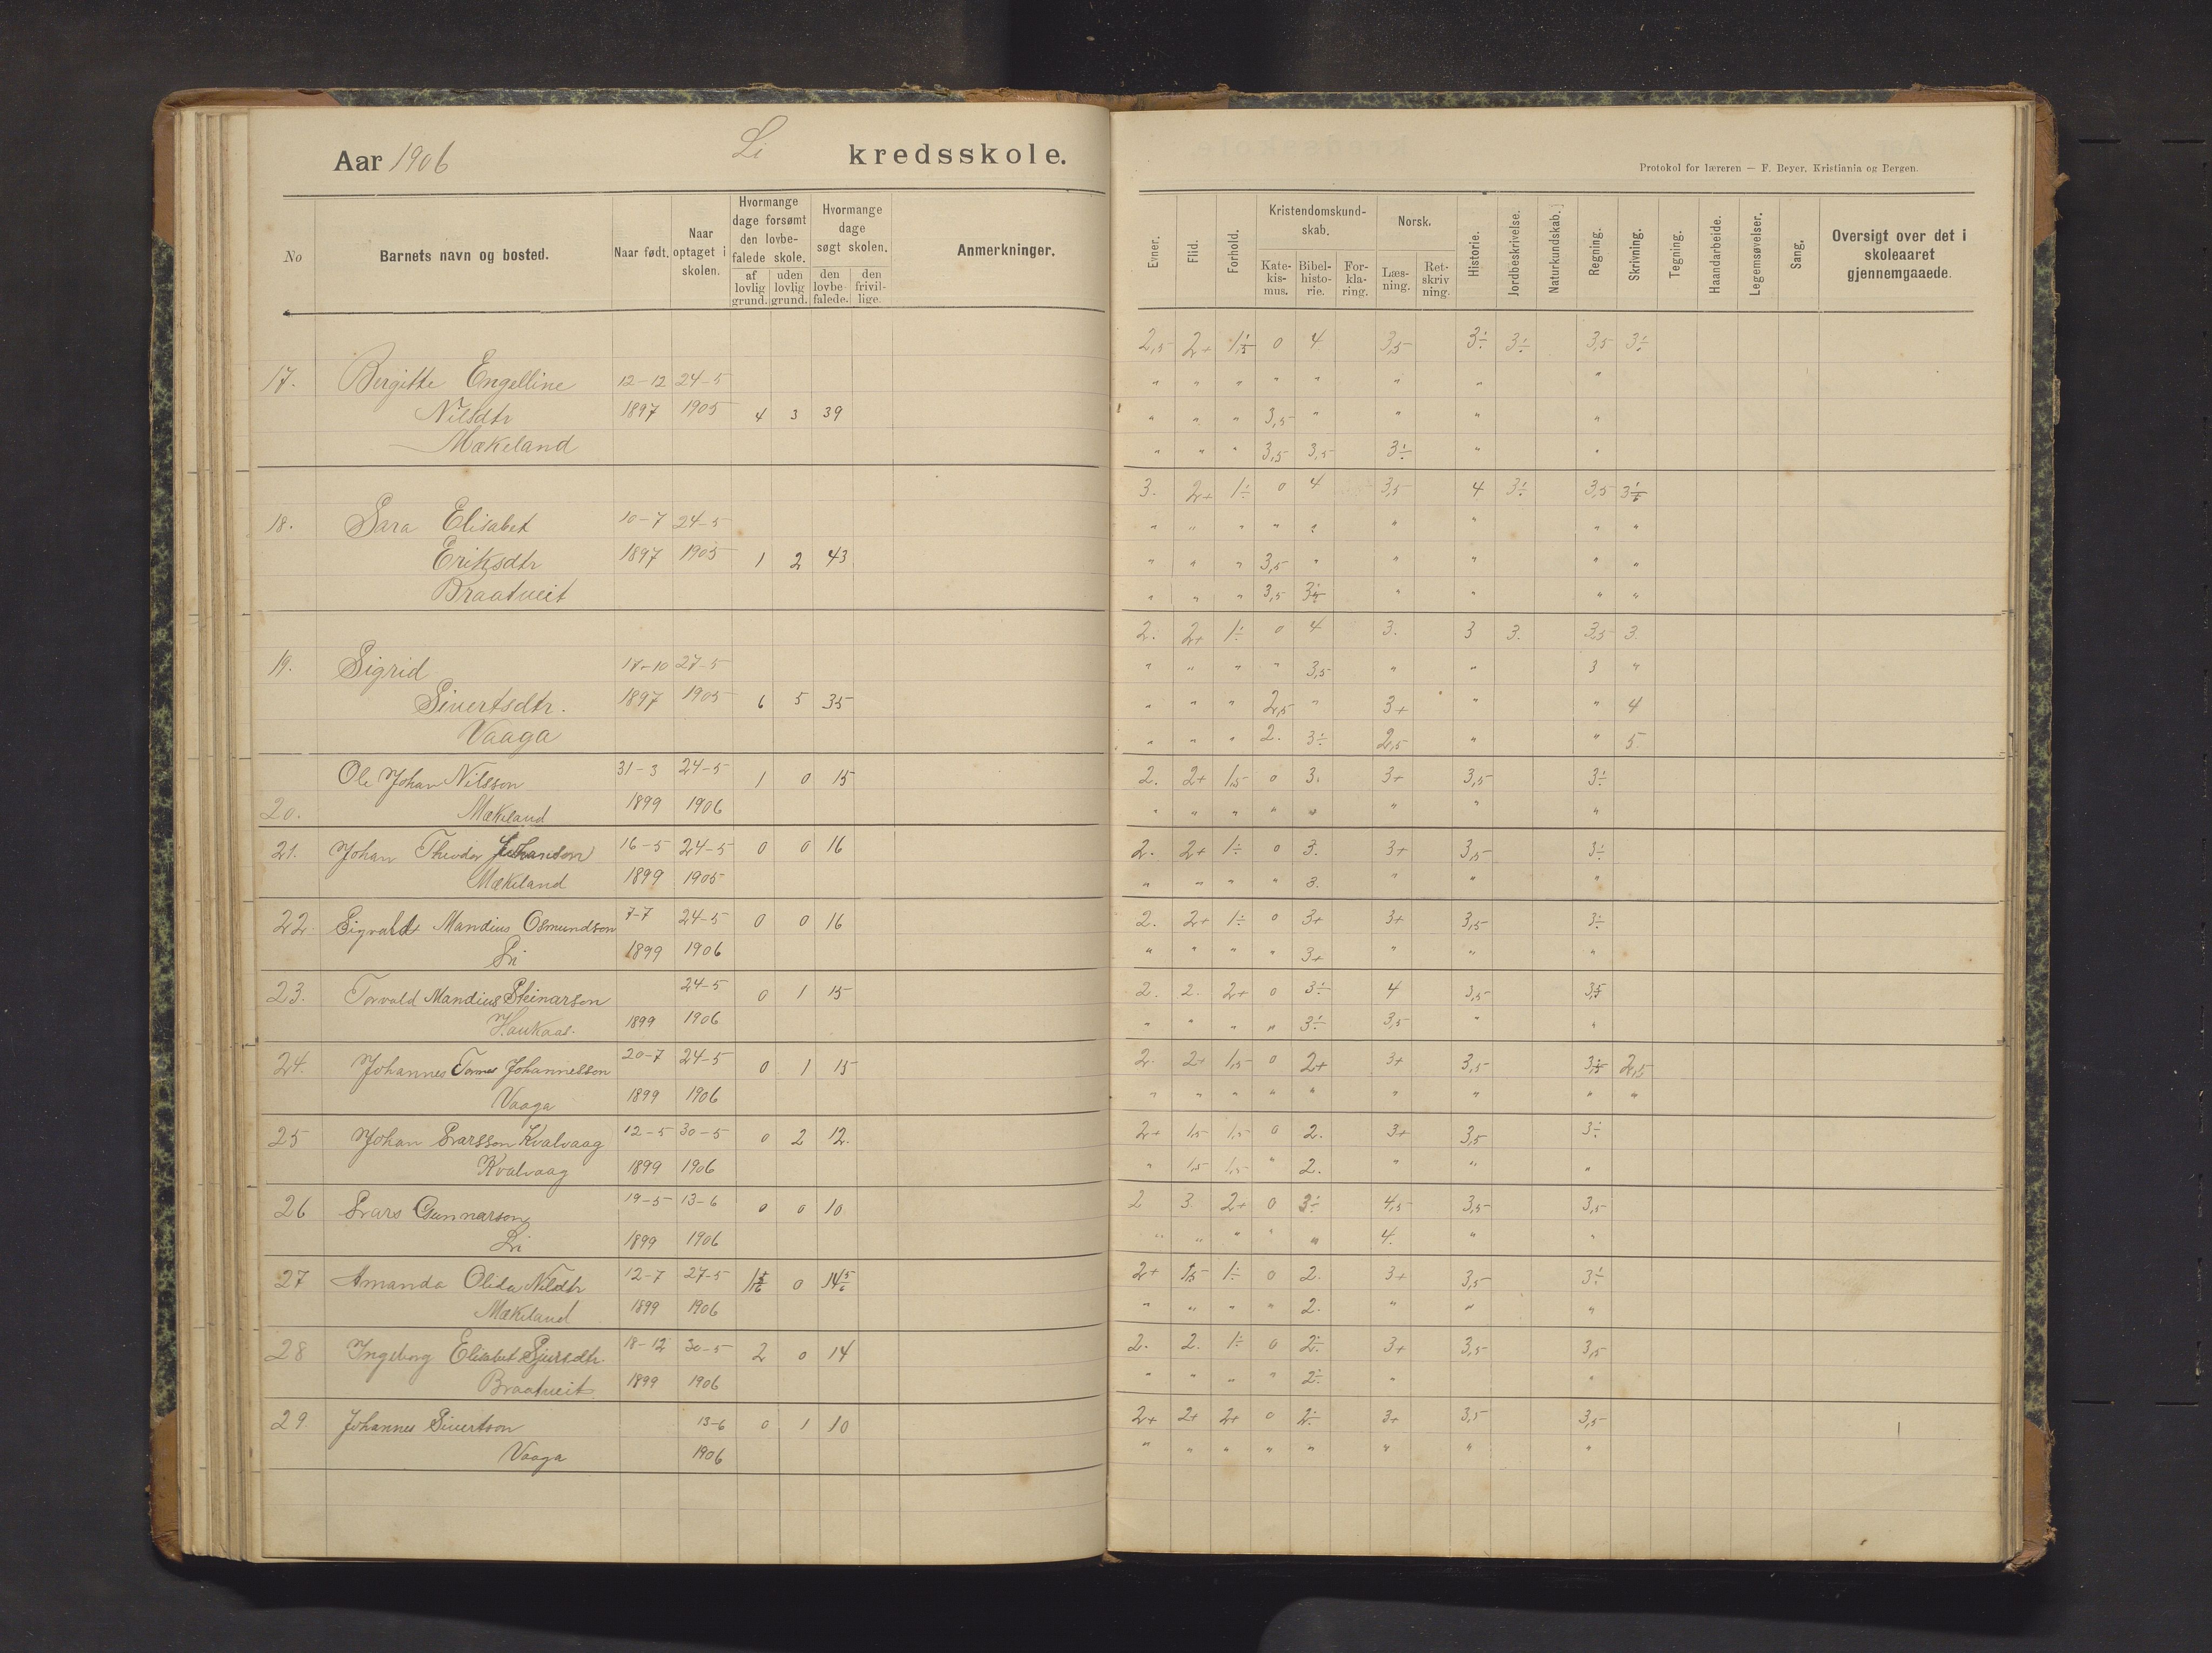 Aar 1906 Li kredsskole.
No Barnets navn og bosted. Naar født. Naar optaget i skolen. Hvormange dage forsømt den lovbefalede skole. af lovlig grund. uden lovlig grund. Hvormange dage søgt skolen. den lovbefalede. den frivillige. Anmerkninger.
17. Birgitte Engelline 12-12 24-5
Nilsdtr 1897 1905 4 3 39
Mækeland
18. Sara Elisabet 10-7 24-5
Eriksdtr 1897 1905 1 2 43
Braatveit
19. Sigrid 18-10 27-5
Sivertsdtr. 1897 1905 6 5 35
Vaaga
Ole Johan Nilsson 31-3 24-5 1 0 15
20. Mækeland 1899 1906
21. Johan Theodor Johanson 16-5 24-5 0 0 16
Mækeland 1899 1905
22. Sigvald Mandius Osmundson 7-7 24-5 0 0 16
Li 1899 1906
23. Torvald Mandius Steinarson 24-5 0 1 15
Haukaas. 1899 1906
24. Johannes Johannesson 20-7 24-5 0 1 15
Vaaga 1899 1906
25 Johan Larsson Kvalvaag 12-5 30-5 0 2 12.
Kvalvaag 1899 1906
26 Lars Gunnarson 19-5 13-6 0 0 10
Li 1899 1906
27 Amanda Olida Nilsdtr 12-7 27-5 0 14 5/6
Mækeland 1899 1906
28 Ingeborg Elisabet Sjursdtr. 18-12 30-5 2 0 14
Braatveit 1899 1906
29. Johannes Sivertson 13-6 0 1 10
Vaaga 1906
Protokol for læreren — F. Beyer, Kristiania og Bergen.
Evner. Flid. Forhold. Kristendomskundskab. Katekismus. Bibelhistorie. Forklaring. Norsk. Læsning. Retskrivning. Historie. Jordbeskrivelse. Naturkundskab. Regning. Skrivning. Tegning. Haandarbeide. Legemsøvelser. Sang. Oversigt over det i skoleaaret gjennemgaaede.
2,5 2+ 0 4 3,5 3÷ 3÷ 3,5 3÷
" " " " " " " "
" " " 3,5 " " " "
" " " 3,5 3,5 3÷ " "
3. 2+ 1÷ 0 4 3,5 4 3÷ 3,5 3÷
" " " " " " " " "
" " " 3,5 " " " " "
" " " 3,5 " " " "
2. 2+ 1÷ 0 4 3. 3 3. 3,5 3.
" " " " 3,5 " " 3 "
" " " 2,5 " 3+ " " 4
" " " 2. 3÷ 2,5 " " 5.
2. 2+ 1,5 0 3. 3+ 3,5 3÷
" " " " " " " "
2. 2+ 1÷ 0 3. 3+ 3,5 3÷
" " " " 3. " " "
2. 2+ 1÷ 0 3+ 3+ 3,5 3÷
" " " " 3+ " " "
2. 2. 2+ 0 3÷ 4 3,5 3,5
" " " " 3÷ 3,5 " "
2. 2+ 1,5 0 2+ 3+ 3,5 2,5
" " " " " " " " "
2+ 1,5 1,5 0 2. 3+ 3,5 3÷
" 1,5 1,5 " 2. " " "
2 3. 2+ 0 3÷ 4,5 3,5 3,5
" " " " " 4. " "
2+ 1,5 1÷ 0 2. 3+ 3,5 3÷
" " " " 2. " " "
2. 2. 1÷ 0 2÷ 3+ 3,5 3,5
" " " " 2÷ " "
2+ 2+ 2+ 0 2÷ 3+ 3,5 3,5
" " " " " " " "